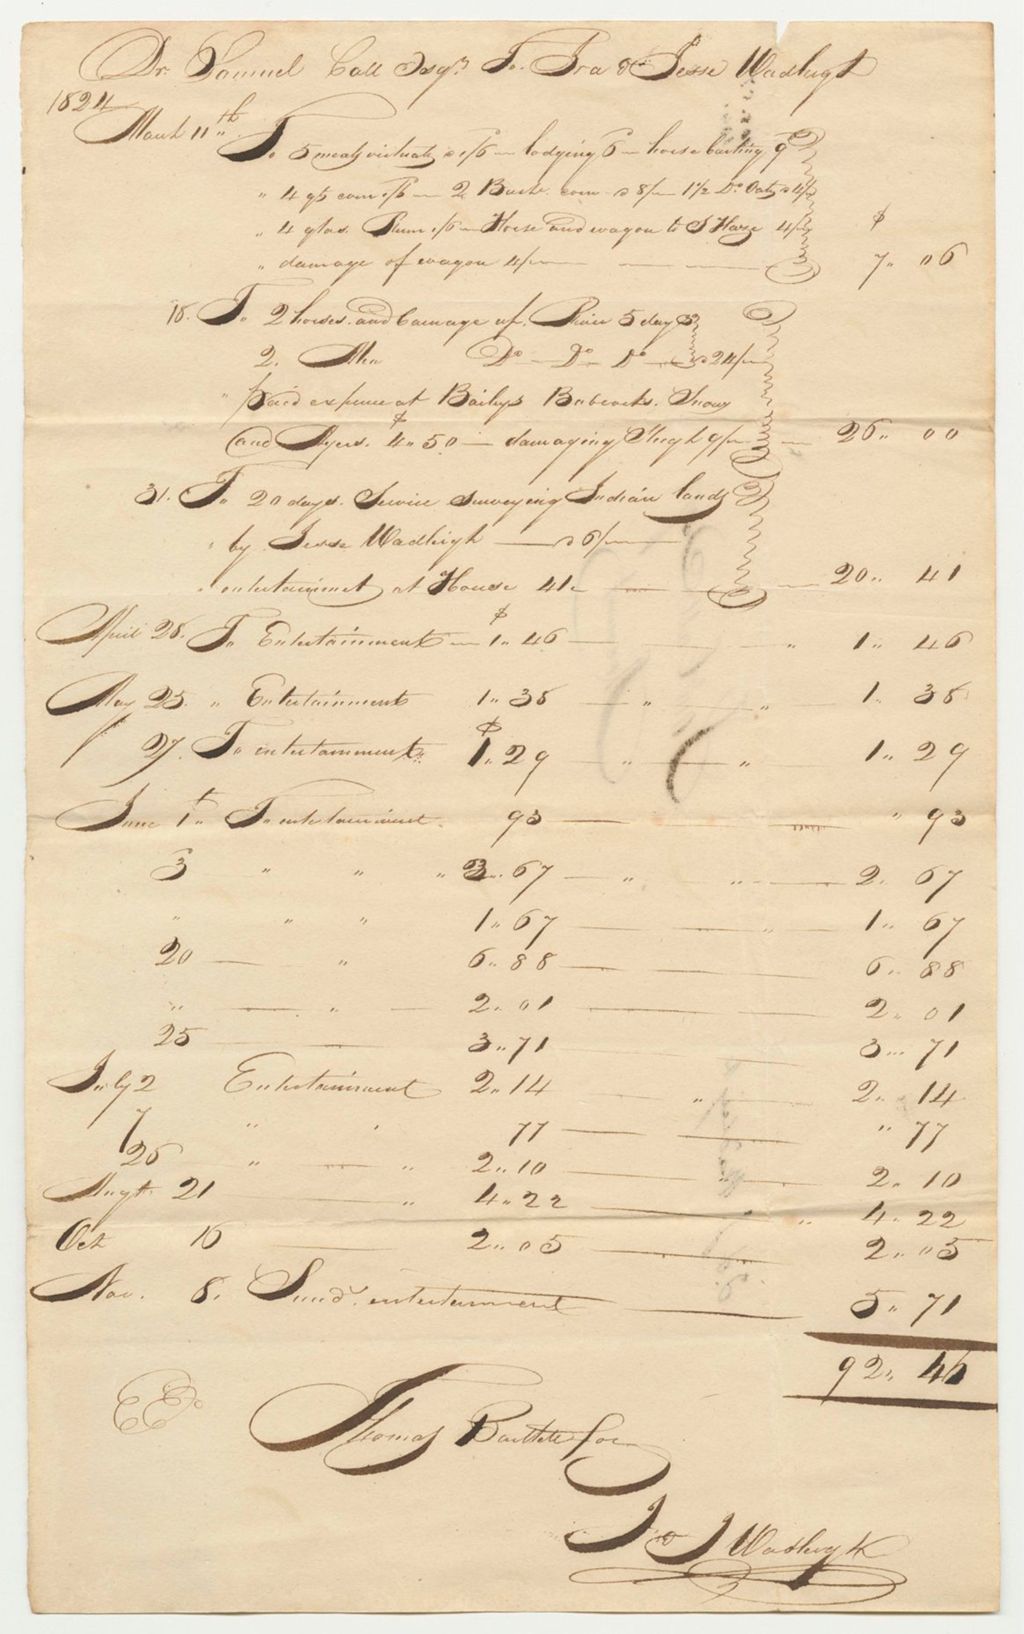 Dr Samuel Call Esqr To Ira & Jesse Wadleigh
1824
March 11th To 5 meals victuals @ 1/6 — lodging 6 — horse baiting 9d
" 4 qts corn 1/6 — 2 Bush. corn @ 8/— 1 1/2 Do Oats @ 4/
" 4 glas. Rum 1/6 — Horse and wagon to 4/ $
" damage of wagon 4/ — — — 7.. 06
18. To 2 horses and Carriage up River 5 days
2. Men Do — Do — Do — @ 24/
" Paid expence at Baileys Babcocks. Snow
and Ayers. $4.. 50 — damaging Sleigh 9/ — 26.. 00
31. To 20 days. Service surveying Indian lands
" by Jesse Wadleigh — @ 6/
" entertainment at House 41c — 20.. 41
April 28. To Entertainment — $1.. 46 — " 1.. 46
May 25. " Entertainment 1.. 35 — " " 1.. 35
27. To entertainment $1.. 29 — " " 1.. 29
June 1st To entertainment. 93 — " 93
3 " " " 2.. 67 — " " 2.. 67
" " " 1.. 67 — " 1.. 67
20 — " 6.. 88 — 6.. 88
" — " — 2.. 01 — 2.. 01
25 — 3.. 71 3.. 71
July 2 Entertainment 2.. 14 " 2.. 14
7 " " 77 — " 77
25 " — " 2.. 10 — 2.. 10
Augt 21 " 4.. 22 — " 4.. 22
Oct 16 — 2.. 05 — 2.. 05
Nov. 8. Sund. entertainment — 5.. 71
92.. 46
EE.
Thomas Bartlett for
I & J Wadleigh